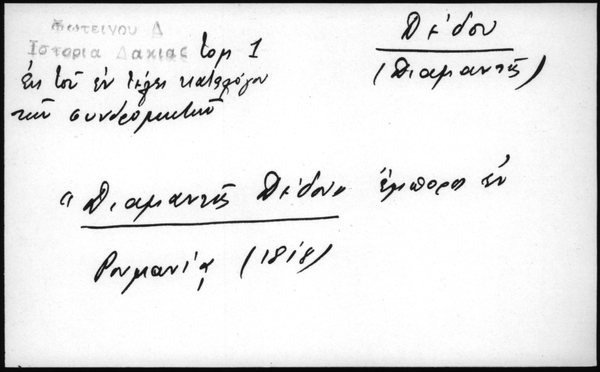 Φωτεινου Δ
Ιστορια Δακιας τομ 1
ἐκ τοῦ ἐν τέλει καταλόγου
τῶν συνδρομητῶν
Δέδου
(Διαμαντῆς)
"Διαμαντῆς Δέδου" ἔμπορος ἐν
Ρουμανίᾳ (1818)